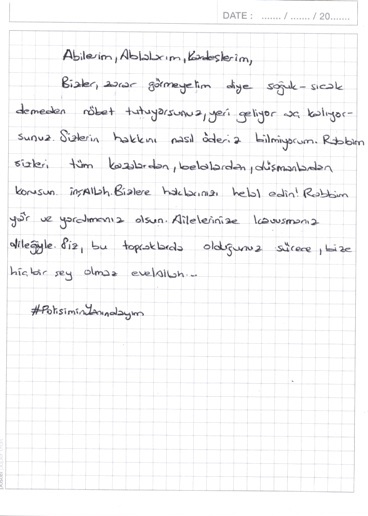 DATE : ....... / ....... / 20.......
Abilerim, Ablalarım, Kardeşlerim,
Bizler, zarar görmeyelim diye soğuk-sıcak
demeden nöbet tutuyorsunuz, yeri geliyor aç kalıyor-
sunuz. Sizlerin hakkını nasıl öderiz bilmiyorum. Rabbim
sizleri tüm kazalardan, belalardan, düşmanlardan
korusun inşAllah. Bizlere haklarınızı helal edin! Rabbim
yâr ve yardımcınız olsun. Ailelerinize kavuşmanız
dileğiyle. Siz, bu topraklarda olduğunuz sürece, bize
hiçbir şey olmaz evelAllah...
#PolisiminYanındayım